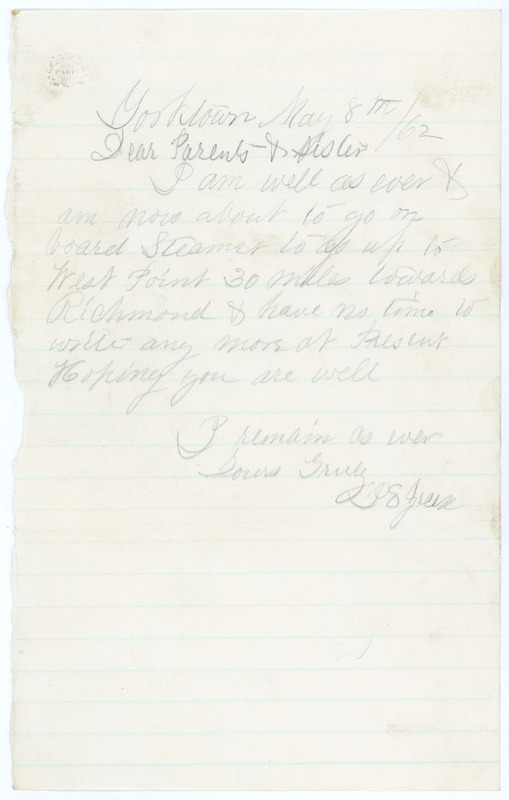 Yorktown May 8th/62
Dear Parents & Sister
I am well as ever &
am now about to go on
board Steamer to go up to
West Point 30 miles towards
Richmond & have no time to
write any more at Present
Hoping you are well
I remain as ever
Yours Truly